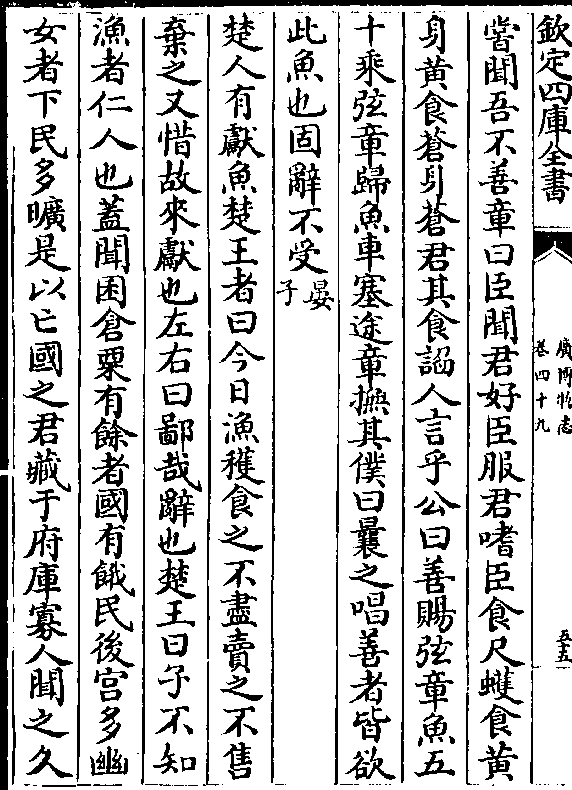 欽定四庫全書
廣博物志
卷四十九
五十五
嘗聞吾不善章曰臣聞君好臣服君嗜臣食尺蠖食黄
身黄食蒼身蒼君其食謟人言乎公曰善賜弦章魚五
十乘弦章歸魚車塞途章撫其僕曰曩之唱善者皆欲
此魚也固辭不受晏子
楚人有獻魚楚王者曰今日漁穫食之不盡賣之不售
棄之又惜故來獻也左右曰鄙哉辭也楚王曰子不知
漁者仁人也蓋聞囷倉粟有餘者國有餓民後宫多幽
女者下民多曠是以亡國之君藏于府庫寡人聞之久